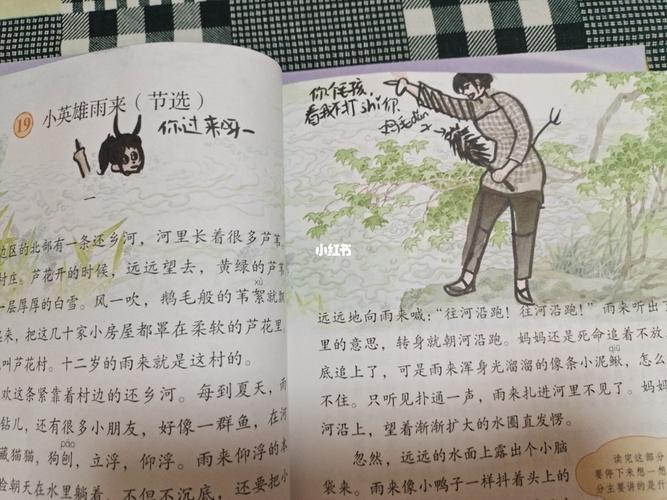 19 小英雄雨来（节选）
你过来呀
一
边区的北部有一条还乡河，河里长着很多芦苇
村庄。芦花开的时候，远远望去，黄绿的芦苇
一层厚厚的白雪。风一吹，鹅毛般的苇絮就飘
xù
起来，把这几十家小房屋都罩在柔软的芦花里
叫芦花村。十二岁的雨来就是这村的。
欢这条紧靠着村边的还乡河。每到夏天，雨
钻儿，还有很多小朋友，好像一群鱼，在河
藏猫猫，狗刨，立浮，仰浮。雨来仰浮的本
páo
脸朝天在水里躺着，不但不沉底，还要把小
你毛孩，
看我不打shi你
鸡毛dǎn
小红书
远远地向雨来喊：“往河沿跑！往河沿跑！”雨来听出
里的意思，转身就朝河沿跑。妈妈还是死命追着不放
底追上了，可是雨来浑身光溜溜的像条小泥鳅，怎么
qiū
不住。只听见扑通一声，雨来扎进河里不见了。妈妈
河沿上，望着渐渐扩大的水圈直发愣。
忽然，远远的水面上露出个小脑
袋来。雨来像小鸭子一样抖着头上的
读完这部分
要停下来想一想
分主要讲的是什